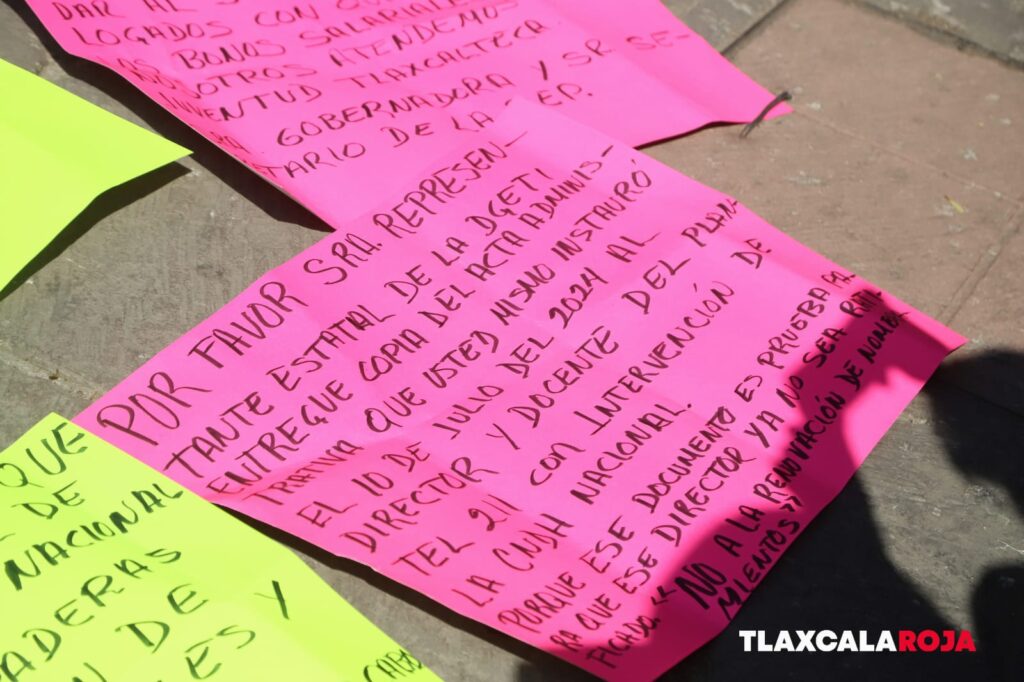 DAR AL S
LOGADOS CON
BONOS SALARIAL
OTROS ATENDEMOS
JUVENTUD TLAXCALTECA
GOBERNADORA Y SR. SE-
TARIO DE LA EP.
POR FAVOR SRA. REPRESEN-
TANTE ESTATAL DE LA DGETI
ENTREGUE COPIA DEL ACTA ADMINIS-
TRATIVA QUE USTED MISMO INSTAURÓ
EL 10 DE JULIO DEL 2024 AL
DIRECTOR Y DOCENTE DEL PLAN-
TEL 211 CON INTERVENCIÓN DE
LA CNDH NACIONAL.
PORQUE ESE DOCUMENTO ES PRUEBA PA-
RA QUE ESE DIRECTOR YA NO SEA RATI-
FICADO. "NO A LA RENOVACIÓN DE NOMBRA
MIENTOS"
QUE
DE
NACIONAL
ADERAS
N DE Y
DE
ES Y
CABO
TLAXCALAROJA